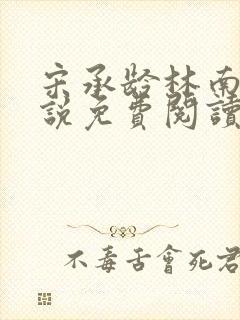 宋承龄林南
説免費閱讀
不毒舌會死君